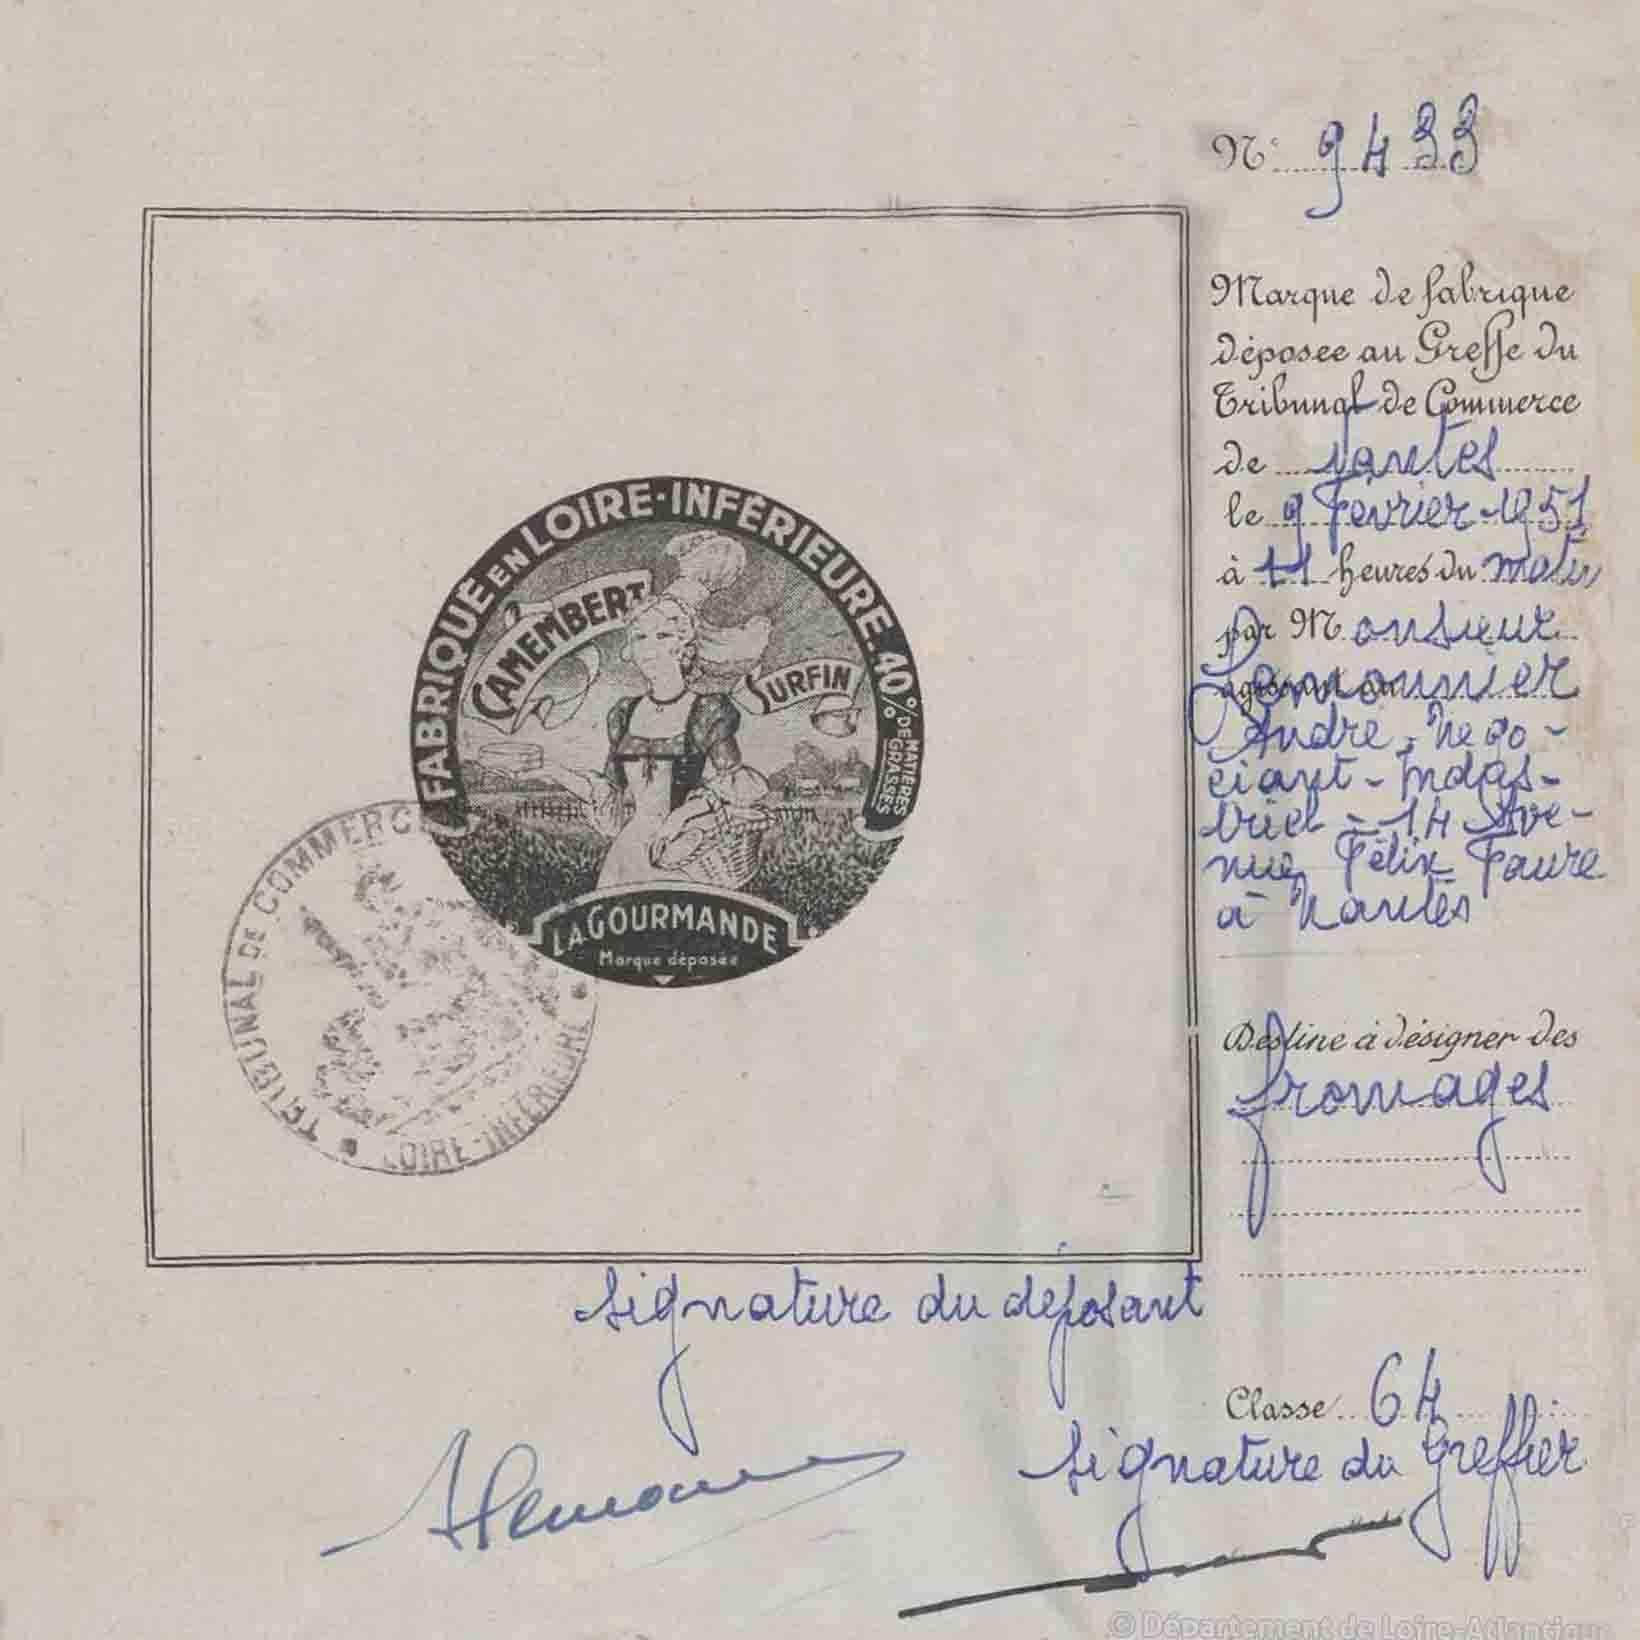 N° 9433
Marque de fabrique
déposée au Greffe du
Tribunal de Commerce
de Nantes
le 9 Février 1951
à 11 heures du matin
par Monsieur
agissant au
André - Négo-
ciant - Indus-
triel - 14 Ave-
nue Félix Faure
à Nantes
Destiné à désigner des
fromages
Classe 64
Signature du Greffier
FABRIQUÉ EN LOIRE-INFÉRIEURE. 40% DE MATIÈRES GRASSES
CAMEMBERT
SURFIN
LA GOURMANDE
Marque déposée
TRIBUNAL DE COMMERCE
LOIRE-INFÉRIEURE
Signature du déposant
© Département de Loire-Atlantique